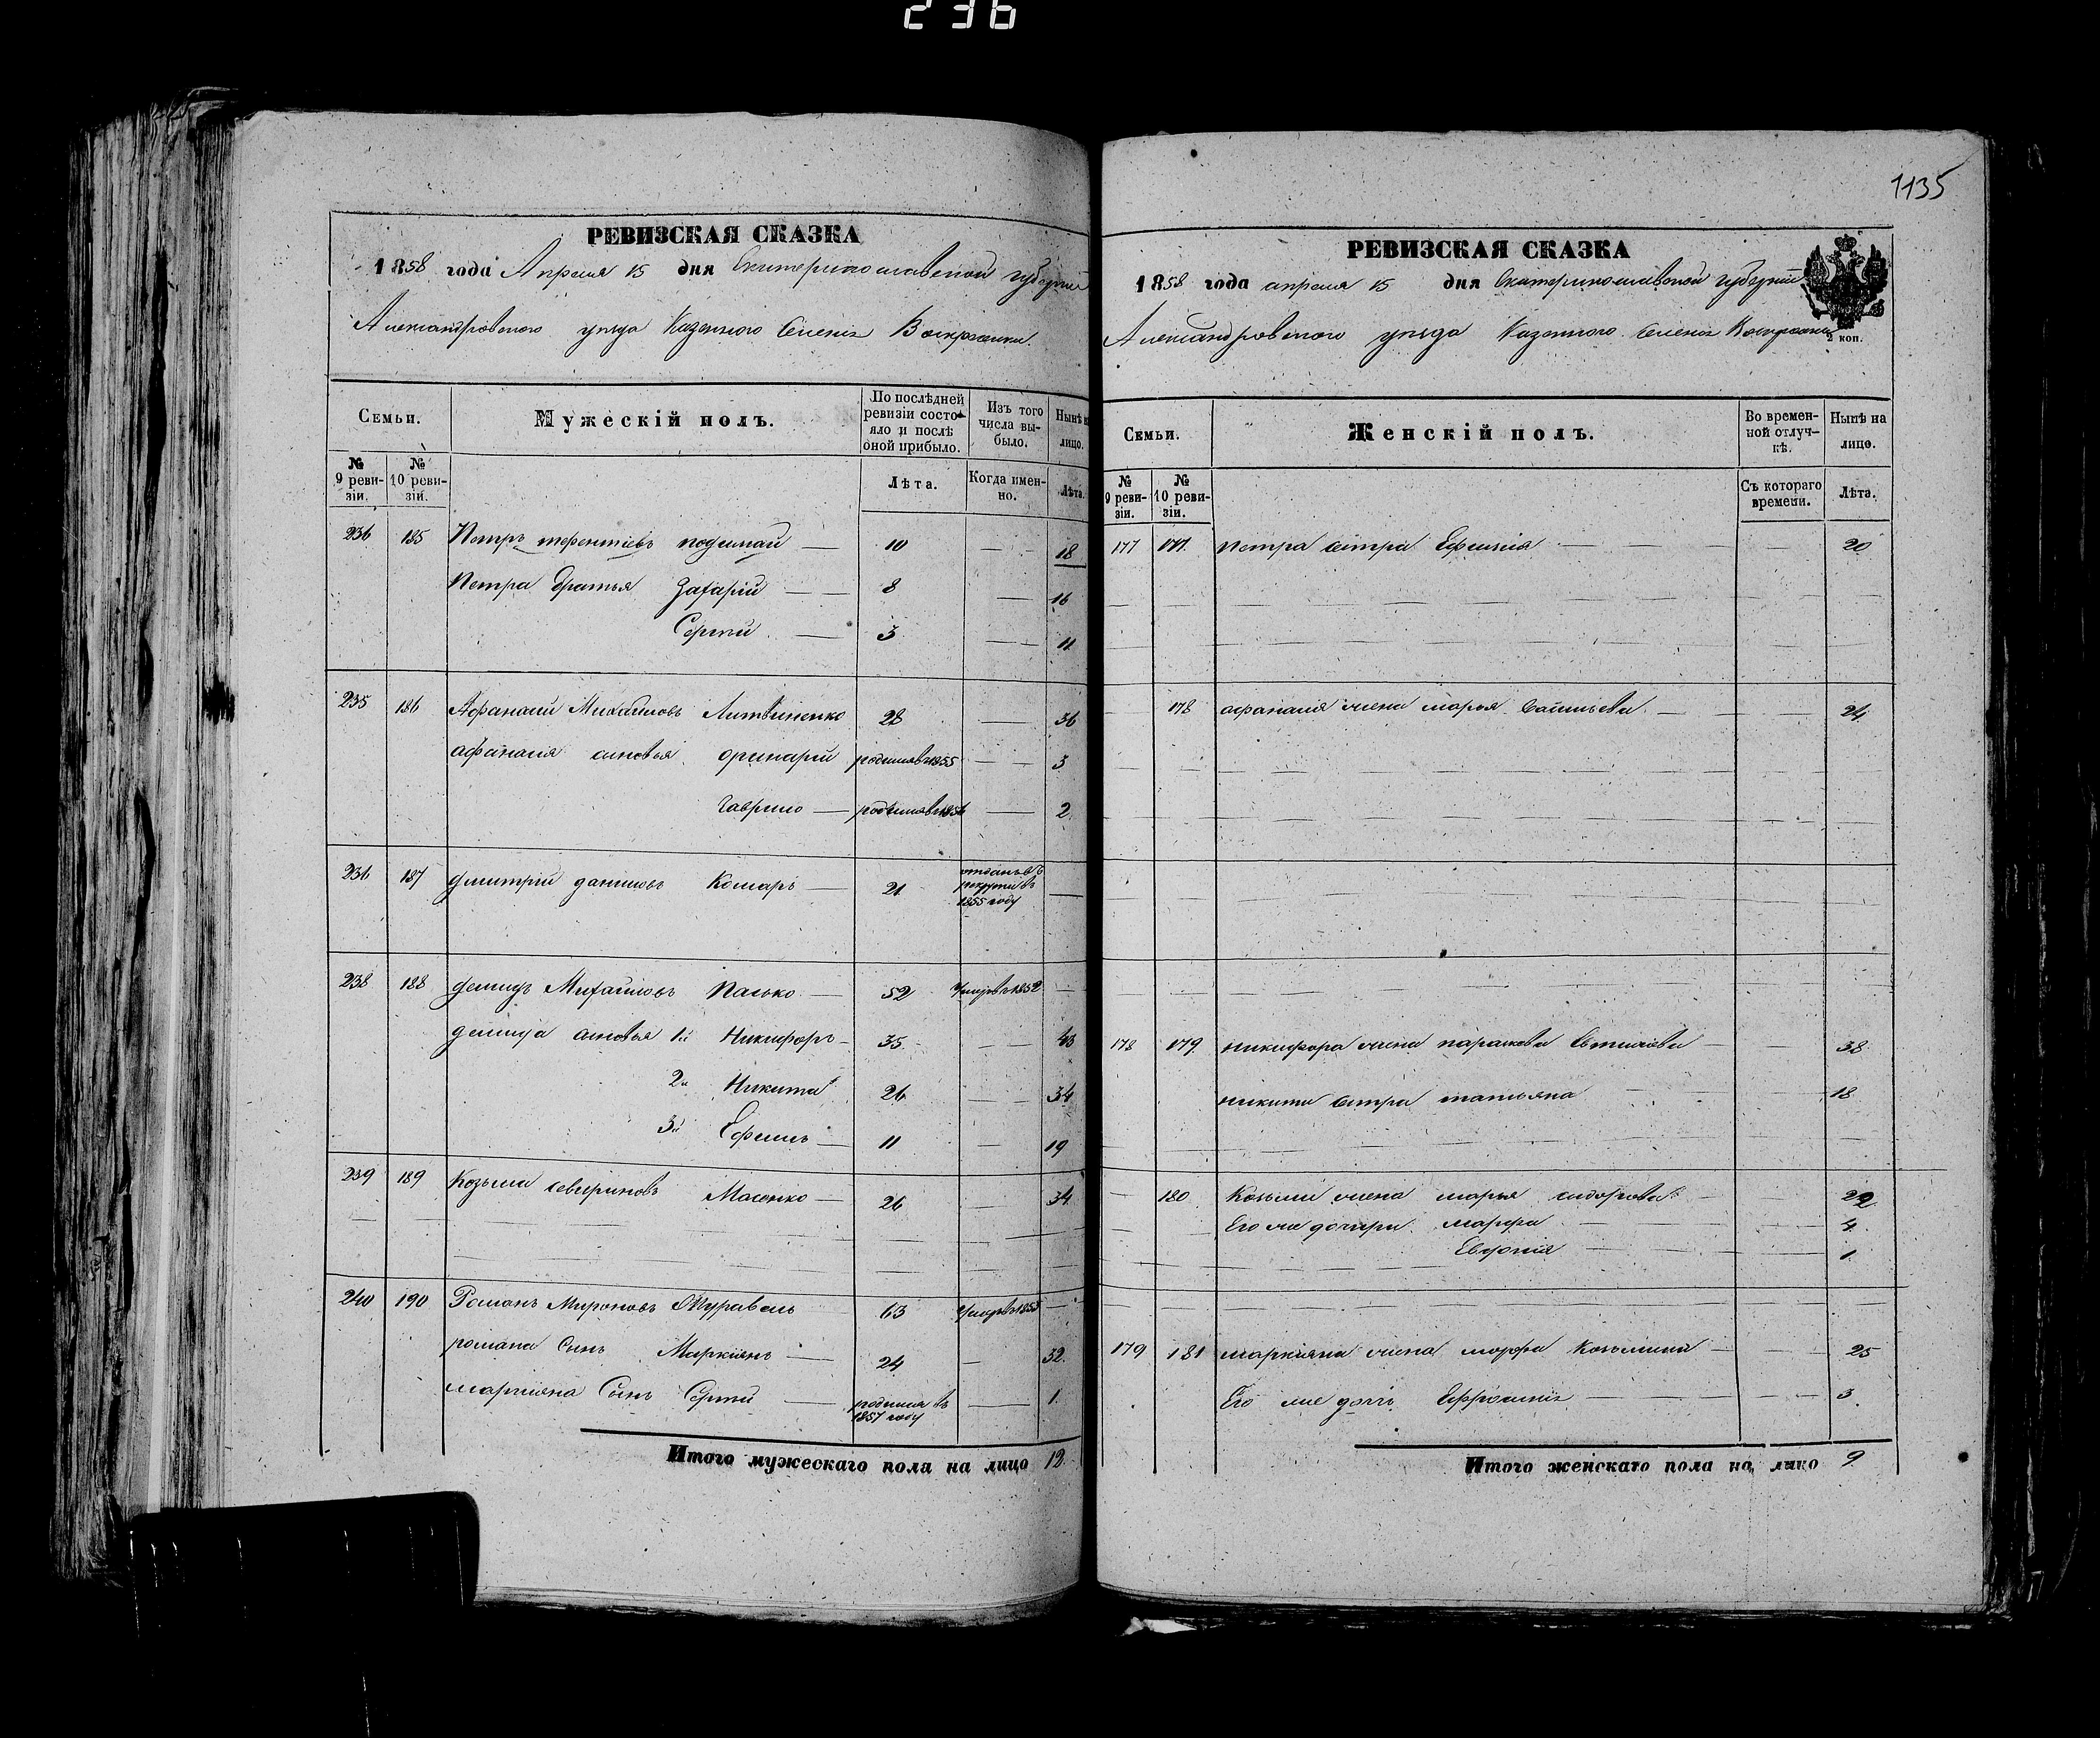 236
1135
РЕВИЗСКАЯ СКАЗКА
1858 года Апреля 15 дня Екатеринославской губернии
Александровского уезда Казенного Селения
Семьи.
Мужескій полъ.
По послѣдней ревизіи состояло и послѣ оной прибыло.
Изъ того числа выбыло.
Нынѣ на лицо.
№ 9 ревизіи.
№ 10 ревизіи.
Лѣта.
Когда именно.
Лѣта.
236 185 Петръ терентіевъ — 10 — 18
Петра братья Захарій — 8 — 16
Сергей — 3 — 11
235 186 Афанасій Михайловъ Литвиненко 28 — 36
афанасія сыновья родился в 1855 — 3
Гаврило — родился в 1856 — 2
236 187 дмитрій даниловъ Комаръ — 21 отданъ въ рекруты въ 1855 году —
238 188 демидъ Михайловъ Пасько — 52 Умеръ в 1852 —
демида сыновья 1й Никифоръ — 35 — 43
2й Никита 26 — 34
3й Ефимъ — 11 — 19
239 189 Козьма севериновъ Масенко — 26 — 34
240 190 Романъ Мироновъ Журавель 63 Умеръ в 1853 —
романа Сынъ Маркіянъ — 24 — 32
маркіяна Сынъ Сергей — родился въ 1857 году — 1
Итого мужескаго пола на лицо 12
РЕВИЗСКАЯ СКАЗКА
1858 года апреля 15 дня Екатеринославской губерніи
Александровского уезда Казенного Селения
2 коп.
Семьи.
Женскій полъ.
Во временной отлучкѣ.
Нынѣ на лицо.
№ 9 ревизіи.
№ 10 ревизіи.
Съ котораго времени.
Лѣта.
177 177 петра сестра — 20
178 афанасія жена марья васильева — 24
178 179 никифора жена парасковья — 38
никиты сестра татьяна 18
180 Козьми жена марья сидорова — 22
Его же дочери марфа — 4
Евфонія — 1
179 181 маркіяна жена марфа Козьмина — 25
Его же дочь Ефросинія — 3
Итого женскаго пола на лицо 9